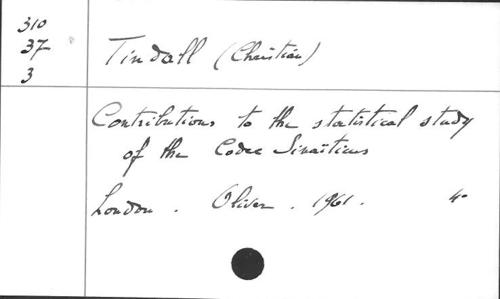 310
37
3
Tindall (Christian)
Contributions to the statistical study
of the Codex Sinaiticus
London. Oliver. 1961. 4°